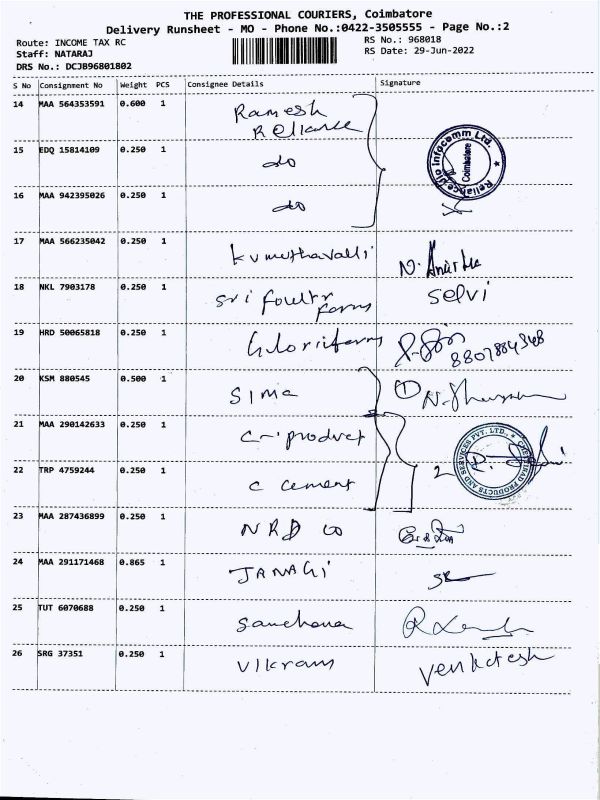 THE PROFESSIONAL COURIERS, Coimbatore
Delivery Runsheet - MO - Phone No.:0422-3505555 - Page No.:2
Route: INCOME TAX RC
RS No.: 968018
Staff: NATARAJ
RS Date: 29-Jun-2022
DRS No.: DCJB96801802
S No Consignment No Weight PCS Consignee Details Signature
14 MAA 564353591 0.600 1 Ramesh
Reliance
15 EDQ 15814109 0.250 1 do
Reliance Jio Infocomm Ltd.
Coimbatore
16 MAA 942395026 0.250 1 do
17 MAA 566235042 0.250 1 Kumuthavalli
18 NKL 7903178 0.250 1 Sri Poultry Selvi
farms
19 HRD 50065818 0.250 1
20 KSM 880545 0.500 1 SIMA 1
21 MAA 290142633 0.250 1 C-product
22 TRP 4759244 0.250 1 C Cement 2
PRODUCTS AND SERVICES PVT. LTD.,
23 MAA 287436899 0.250 1 NRD
24 MAA 291171468 0.865 1 JANAGI
25 TUT 6070688 0.250 1
26 SRG 37351 0.250 1 Vikram Venkatesh